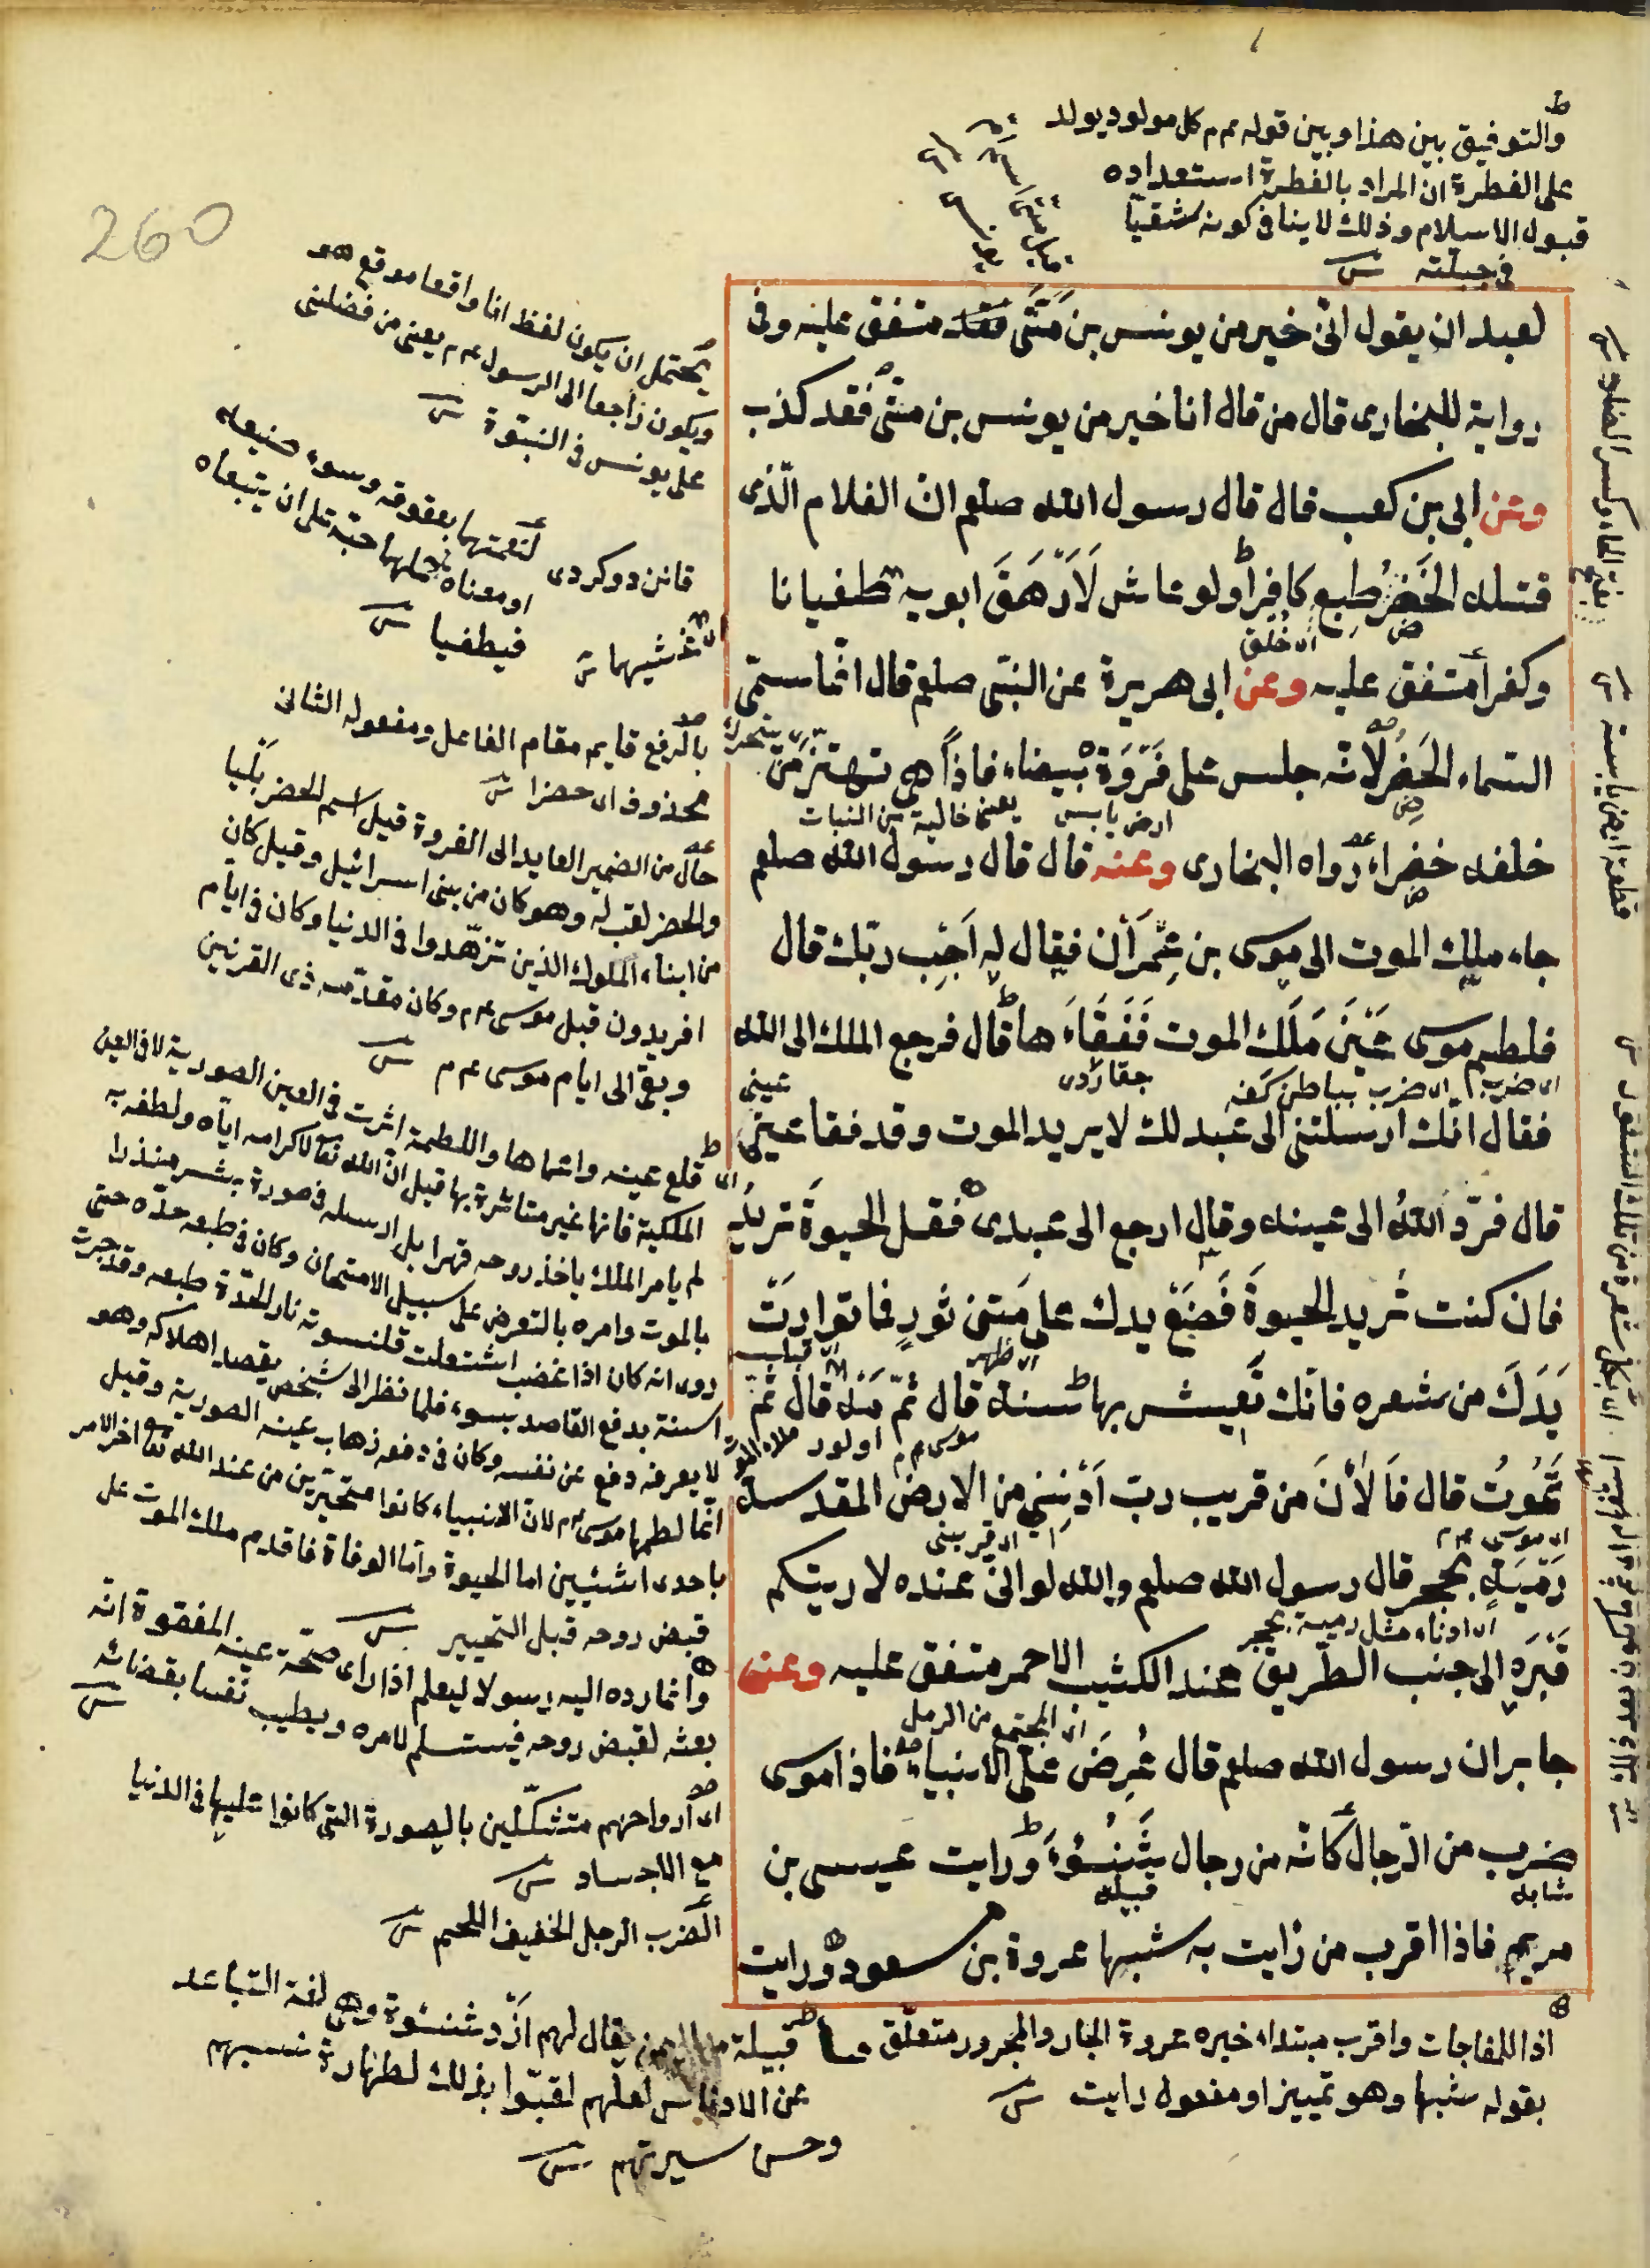 260
والتوفيق بين هذا وبين قوله عم كل مولود يولد
على الفطرة ان المراد بالفطرة استعداده
قبول الاسلام وذلك لا ينافى كونه شقيا
فى جبلته
لعبد ان يقول انى خير من يونس بن متى متفق عليه وفى
رواية للبخارى قال من قال انا خير من يونس بن متى فقد كذب
وعن ابى بن كعب قال قال رسول الله صلعم ان الغلام الذى
قتله الخضر طبع كافرا ولو عاش لارهق ابويه طغيانا
اى خلق
وكفرا متفق عليه وعن ابى هريرة عن النبى صلعم قال انما سمى
السماء الخضر لانه جلس على فروة بيضاء فاذا هى تهتز من
ارض يابس يعنى خالية من النبات
خلفه خضراء رواه البخارى وعنه قال قال رسول الله صلعم
جاء ملك الموت الى موسى بن عمران فقال له اجب ربك قال
فلطم موسى عين ملك الموت ففقاءها قال فرجع الملك الى الله
اى ضرب بباطن كفه
فقال انك ارسلتنى الى عبد لك لا يريد الموت وقد فقا عينى
قال فرد الله الى عينه وقال ارجع الى عبدى فقل الحيوة تريد
فان كنت تريد الحيوة فضع يدك على متن ثور فما توارت
اى ظهر
يدك من شعره فانك تعيش بها سنة قال ثم مه قال ثم
تموت قال فالأن من قريب رب ادننى من الارض المقدسة
اى موسى عم
اى قربنى
رمية بحجر قال رسول الله صلعم والله لو انى عنده لاريتكم
اى ادناء مثل رمية بحجر
قبره الى جنب الطريق عند الكثيب الاحمر متفق عليه وعن
اى المجتمع من الرمل
جابر ان رسول الله صلعم قال عرض على الانبياء فاذا موسى
ضرب من الرجال كانه من رجال شنوءة ورايت عيسى بن
قبيله
مريم فاذا اقرب من رايت به شبها عروة بن مسعود ورايت
يحتمل ان يكون لفظ انا واقعا موقع هو
ويكون راجعا الى الرسول عم يعنى من فضلنى
على يونس فى النبوة
لنعمتهما بعقوقه وسوء صنيعه
او معناه حملهما حبه على ان يتبعاه
فيطغيا
اى غشيهما
بالرفع قايم مقام الفاعل ومفعوله الثانى
محذوف اى خضرا
حال من الضمير العايد الى الفروة قيل اسم الخضر بليا
والخضر لقب له وهو كان من بنى اسرائيل وقيل كان
من ابناء الملوك الذين تزهدوا فى الدنيا وكان فى ايام
افريدون قبل موسى عم وكان مقدمه ذى القرنين
وبقى الى ايام موسى عم
اى قلع عينه واعماها واللطمة اثرت فى العين الصورية لا فى العين
الملكية فانها غير متاثرة بها قيل ان الله تعا لاكرامه اياه ولطفه به
لم يامر الملك باخذ روحه قهرا بل ارسله فى صورة بشر منذرا
بالموت وامره بالتعرض على سبيل الامتحان وكان فى طبعه حده حتى
روى انه كان اذا غضب اشتعلت قلنسوته نار لشدة طبعه وقد جرت
السنة بدفع القاصد بسوء فلما نظر الى شخص يقصد اهلاكه وهو
لا يعرفه دفع عن نفسه وكان فى دفعه ذهاب عينه الصورية وقيل
انما لطمها موسى عم لان الانبياء كانوا مخيرين من عند الله تعا اخر الامر
باحدى اشئيين اما الحيوة واما الوفاة فاقدم ملك الموت على
قبض روحه قبل التخيير
وانما رده اليه رسولا ليعلم اذا راى صحة عينه المفقوة انه
بعثه لقبض روحه فيستسلم لامره ويطيب نفسا بقضائه
اى ارواحهم متشكلين بالصورة التى كانوا عليها فى الدنيا
مع الاجساد
الضرب الرجل الخفيف اللحم
اذا للمفاجات واقرب مبتداء خبره عروة الجار والمجرور متعلق
بقوله شبها وهو تمييز او مفعول رايت
قبيلة يقال لهم ازد شنوة وهى لغة التباعد
عن الادناس لعلهم لقبوا بذلك لطهارة نسبهم
وحسن سيرتهم